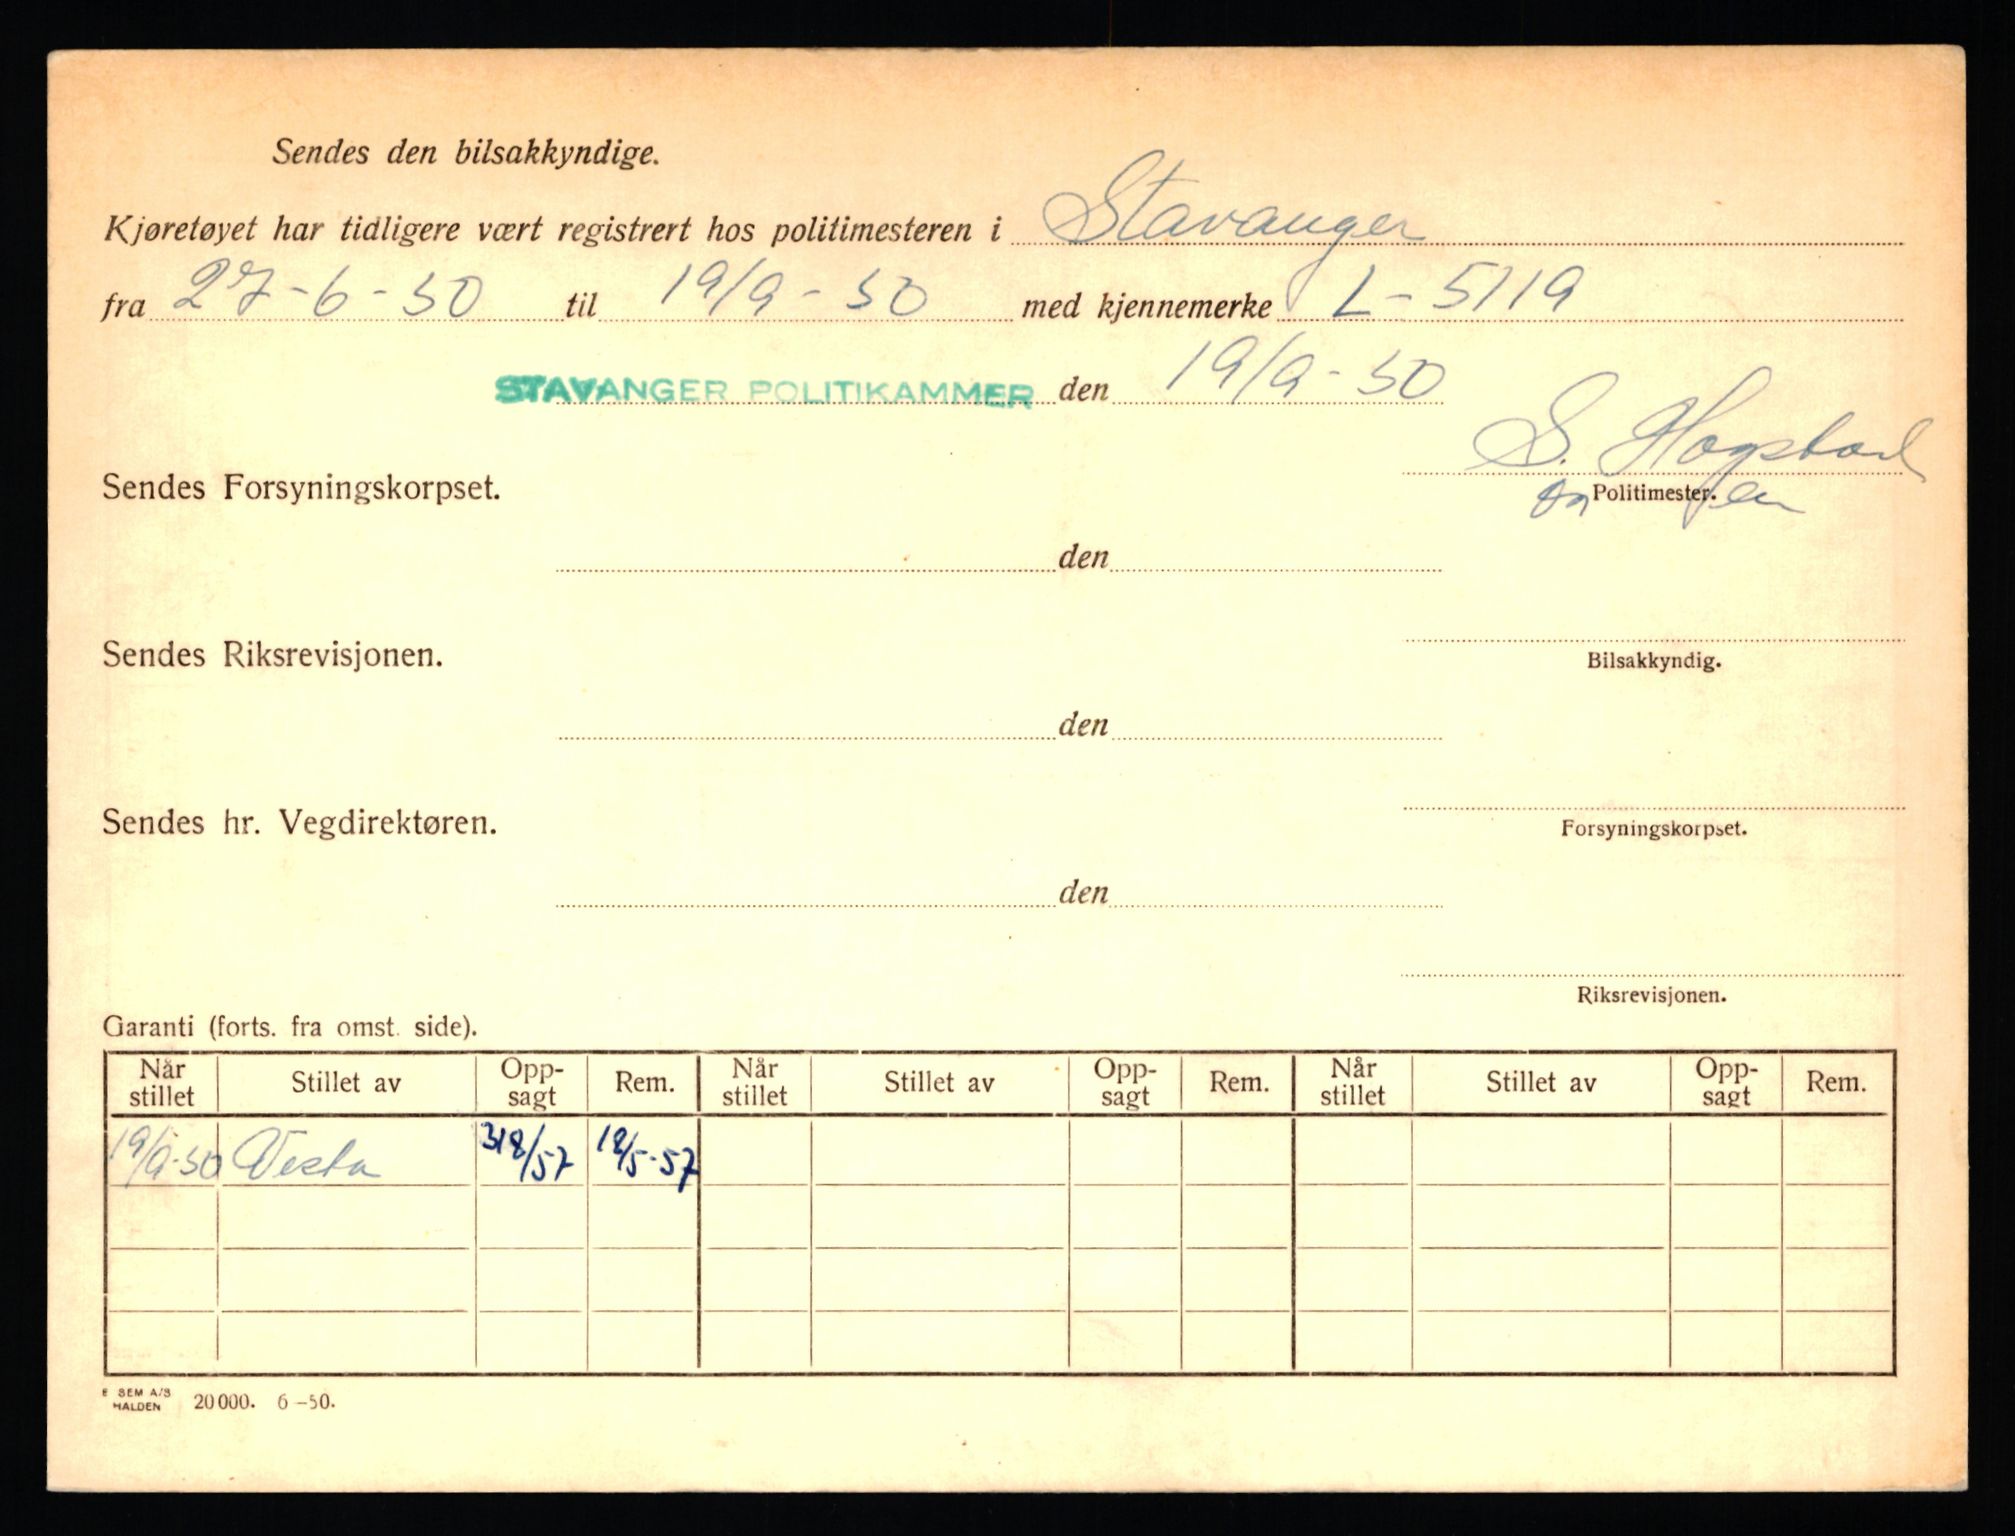 Sendes den bilsakkyndige.
Kjøretøyet har tidligere vært registrert hos politimesteren i Stavanger
fra 27-6-50 til 19/9-50 med kjennemerke L-5119
STAVANGER POLITIKAMMER den 19/9-50
S. Hogstad
Sendes Forsyningskorpset.
Politimester.
den
Sendes Riksrevisjonen.
Bilsakkyndig.
den
Sendes hr. Vegdirektøren.
Forsyningskorpset.
den
Riksrevisjonen.
Garanti (forts. fra omst. side).
Når stillet Stillet av Opp-sagt Rem. Når stillet Stillet av Opp-sagt Rem. Når stillet Stillet av Opp-sagt Rem.
19/9-50 Vesta 318/57 18/5-57
E SEM A/S
HALDEN 20000. 6-50.